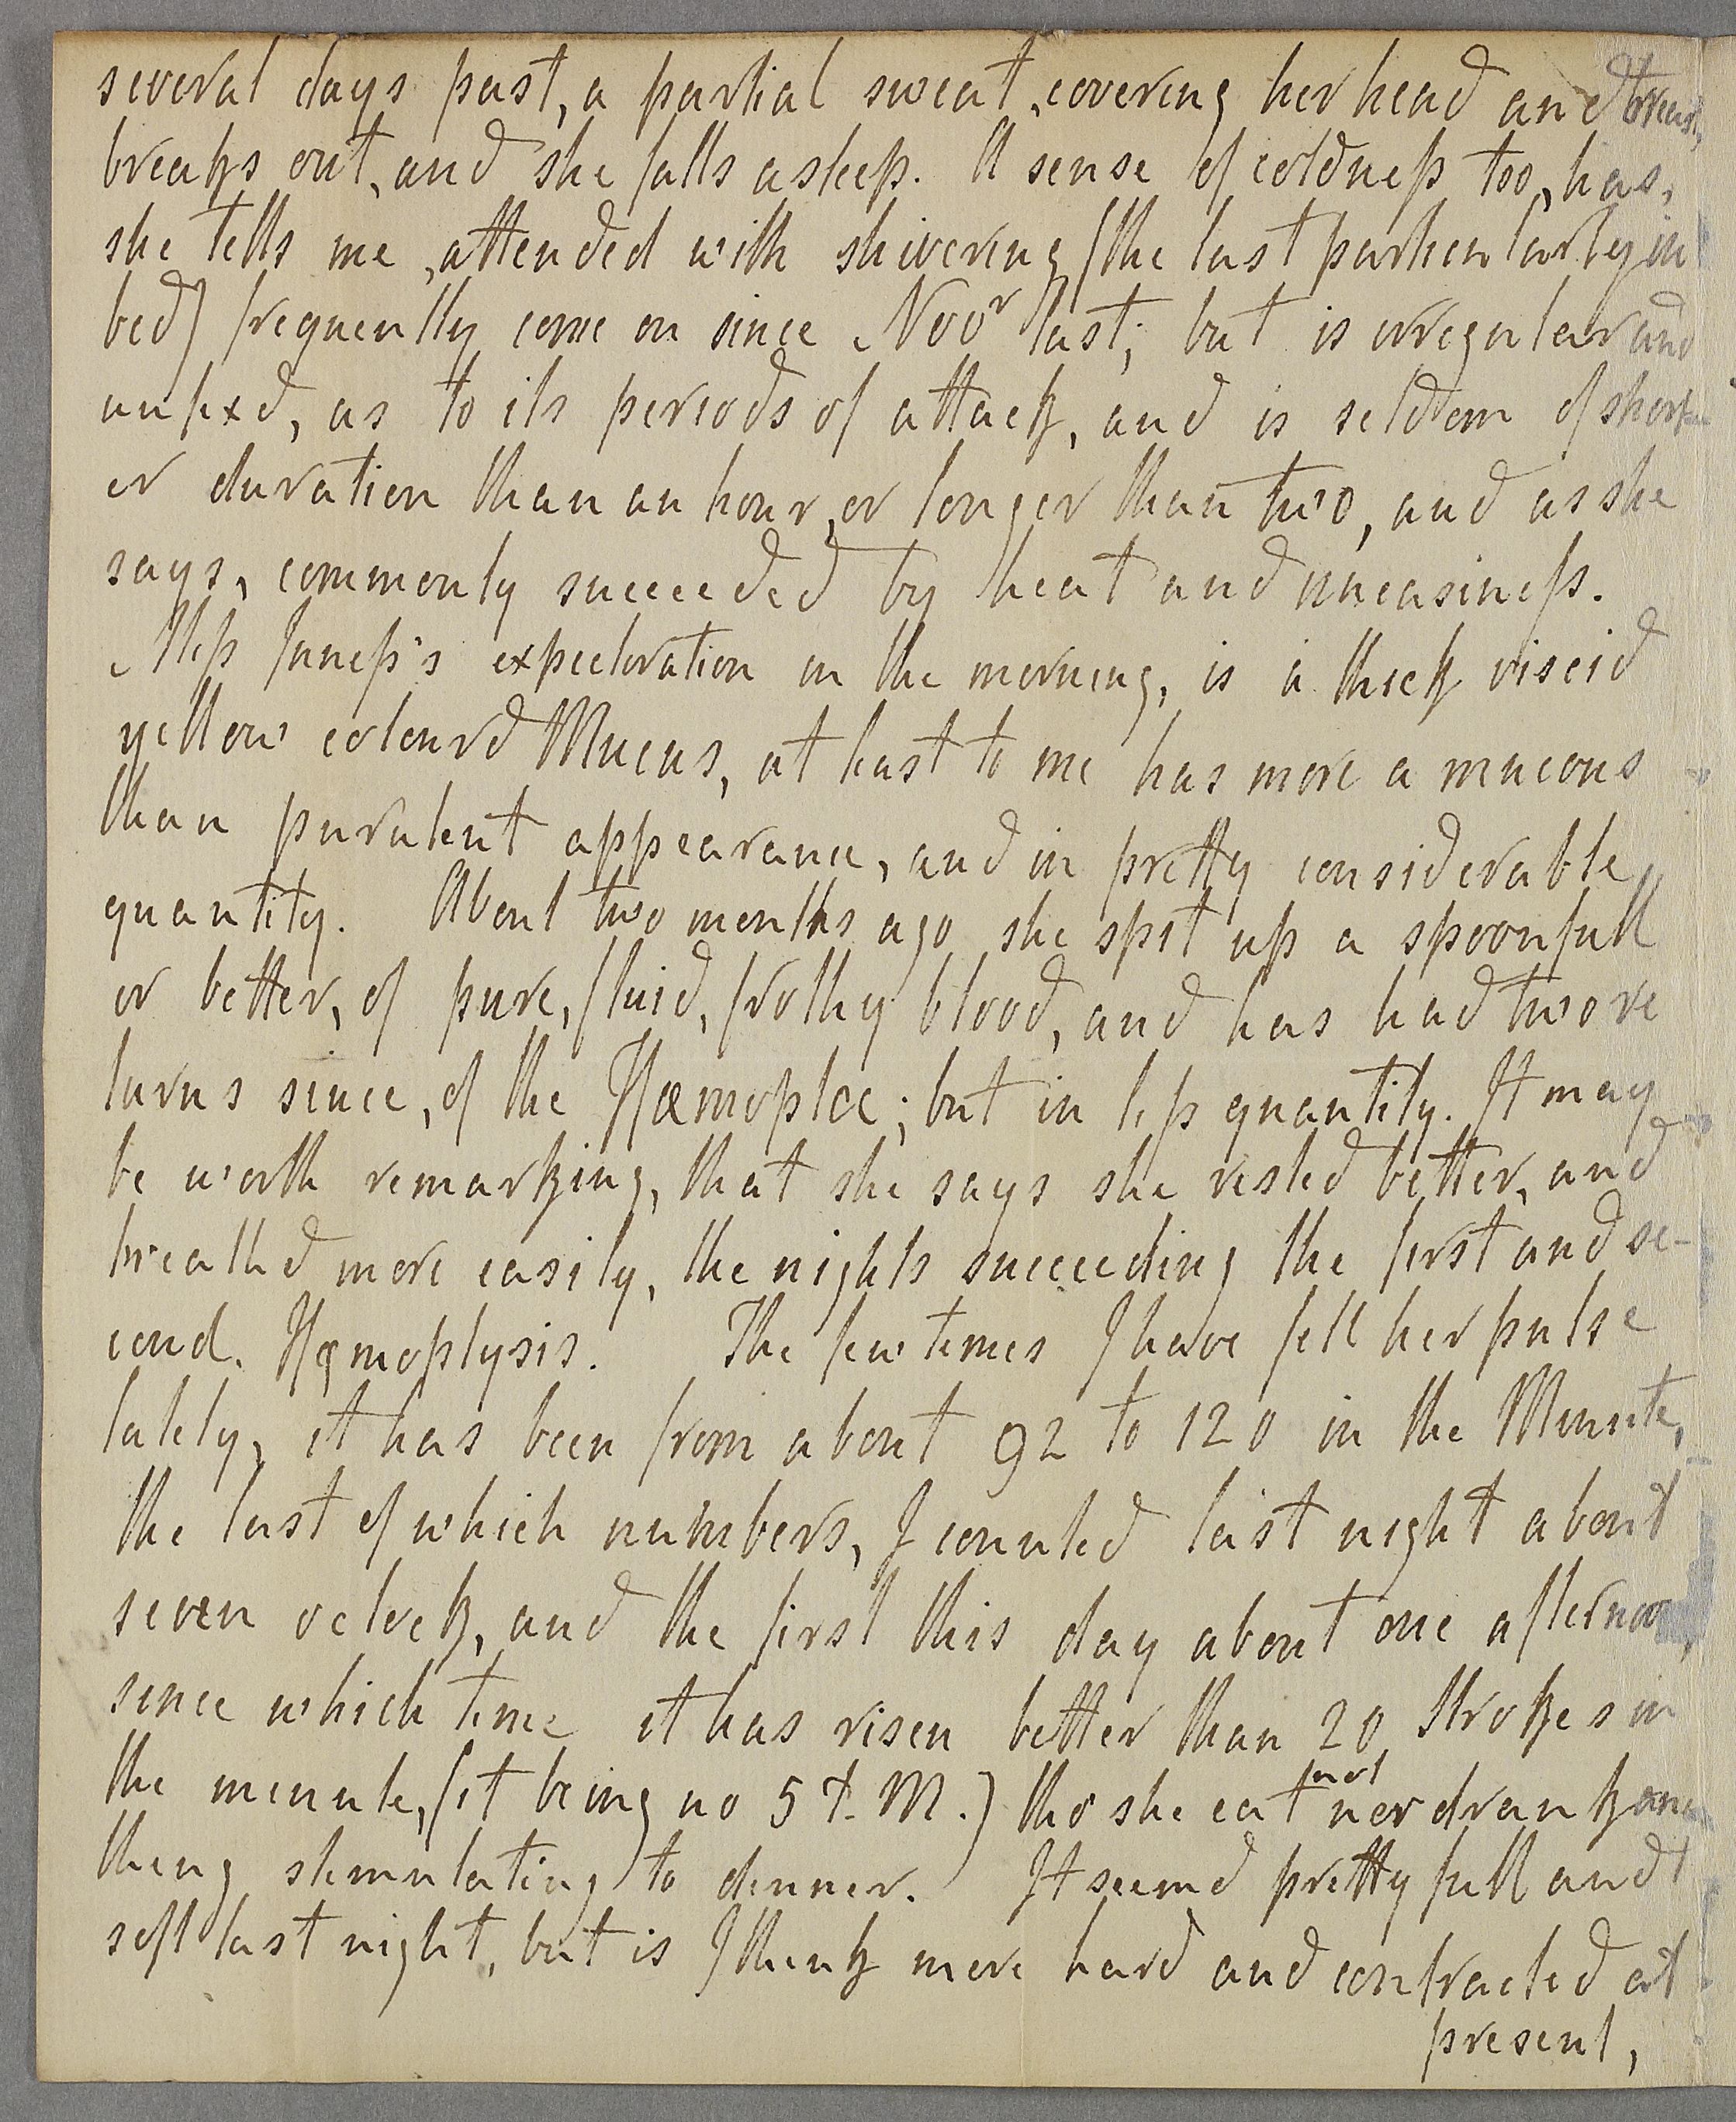 several days past, a partial sweat, covering her head and breast,
breaks out, and she falls asleep. A sense of coldness too, has,
she tells me, attended with shivering (the last particularly in
bed) frequently come on since Novr last; but is irregular and
unfixd, as to its periods of attack, and is seldom of short
er duration than an hour, or longer than two, and as she
says, commonly succeeded by heat and uneasiness.
Miss Inness's expectoration in the morning, is a thick viscid
yellow colourd Mucus, at least to me has more a mucous
than purulent appearance, and in pretty considerable
quantity. About two months ago she spit up a spoonfull
or better, of pure, fluid, frothy blood, and has had two re
turns since, of the Hæmoptoe; but in less quantity. It may
be worth remarking, that she says she rested better, and
breathed more easily, the nights succeeding the first and se-
cond. Hæmoptysis. The few times I have felt her pulse
lately, it has been from about 92 to 120 in the Minute,
the last of which numbers, I counted last night about
seven oclock, and the first this day about one afternoon,
since which time it has risen better than 20 strokes in
the minute, (it being no 5 P. M.) tho' she eat not nor drank any
thing stimulating to dinner. It seemd pretty full and
soft last night, but is I think more hard and contracted at
present,